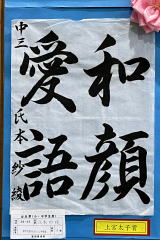 和顔
愛語
中三 氏本紗綾
上宮太子賞